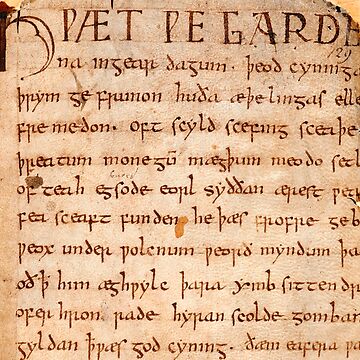 HǷÆT ǷE GARDE
na ingear dagum. þeod cyninga
þrym ge frunon huða æþelingas elle
fre medon. oft scyld scefing sceaþe
þreatum monegū mægþum meodo setl
of teah egsode eorl syððan ærest ƿea
fea sceaft funden he þæs frofre geb
ƿeox under ƿolcnum ƿeorð myndum þa
oð þ him æghƿylc þara ymb sittendra
ofer hron rade hyran scolde gomban
gyldan þ ƿæs god cyning. ðæm eafera ƿæ